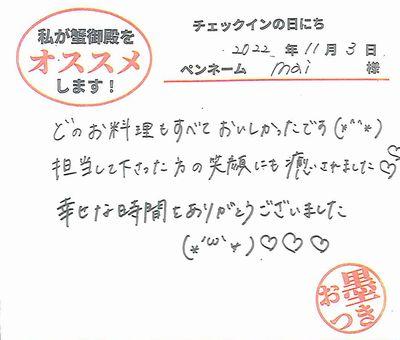 私が蟹御殿を
オススメ
します!
チェックインの日にち
2022 年 11 月 3 日
ペンネーム mai 様
どのお料理もすべておいしかったです(*^^*)
担当して下さった方の笑顔にも癒されました♡
幸せな時間をありがとうございました
(*'ω'*)♡♡♡
お墨つき